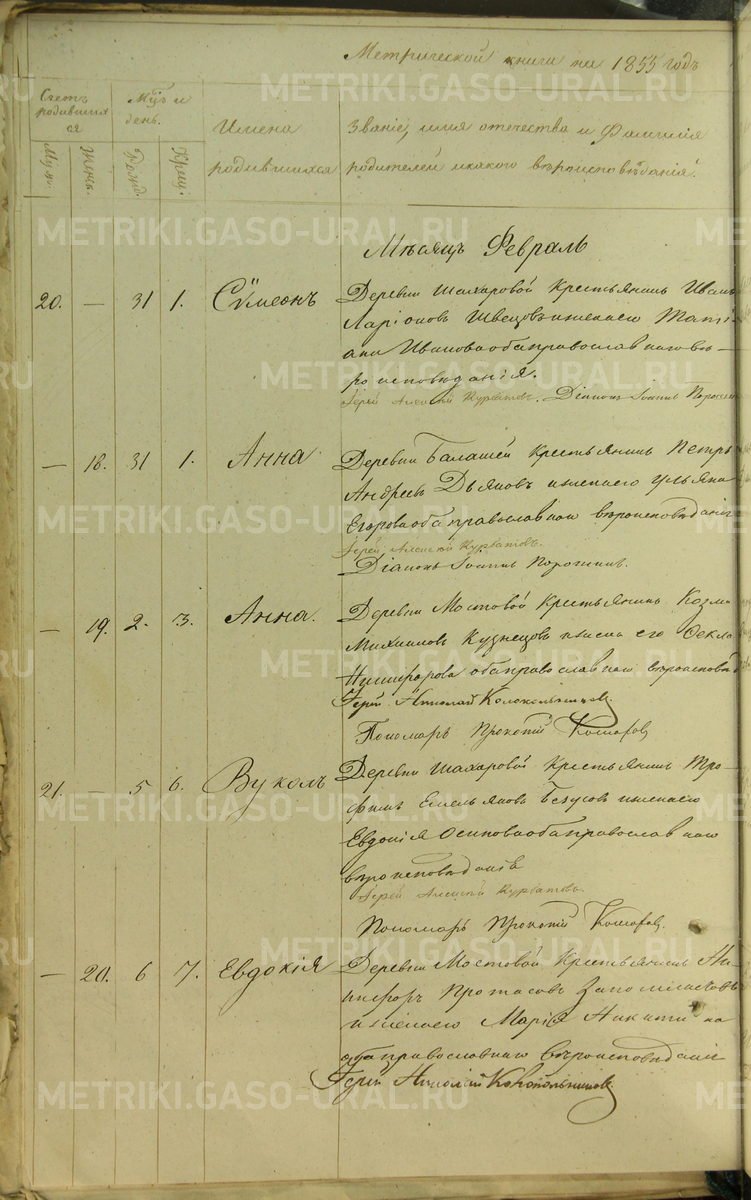 Метрической книги на 1855 годъ
Счетъ родившихся
Мѣс. и день.
Имена родившихся
Званіе, имя отечество и фамилія родителей и какого вѣроисповѣданія.
Муж. Жен. Рожд. Крещ.
Мѣсяцъ Февраль
20. — 31 1. Сѵмеонъ Деревни Шахаровой Крестьянинъ Иванъ
Ларіоновъ Швецовъ и жена его Тати-
ана Иванова оба православнаго вѣ-
роисповѣданія.
Іерей Алексій Курбатовъ. Діаконъ Іоаннъ
— 18. 31 1. Анна Деревни Балашей Крестьянинъ Петръ
Андреевъ Дьяковъ и жена его Ульяна
Егорова оба православнаго вѣроисповѣданія
Іерей Алексій Курбатовъ.
Діаконъ Іоаннъ
— 19. 2. 3. Анна. Деревни Мостовой Крестьянинъ Козма
Михаиловъ Кузнецовъ и жена его Ѳекла
Никифорова оба православнаго
Іерей Николай Колокольниковъ
Пономарь Прокопій
21. — 5 6. Вуколъ Деревни Шахаровой Крестьянинъ Тро-
фимъ Емельяновъ и жена его
Евдокія Осипова оба православнаго
вѣроисповѣданія
Іерей Алексій Курбатовъ
Пономарь Прокопій
— 20. 6 7. Евдокія Деревни Мостовой Крестьянинъ Ни-
кифоръ Протасовъ
и жена его Марія Никитина
оба православнаго вѣроисповѣданія
Іерей Николай Колокольниковъ
METRIKI.GASO-URAL.RU